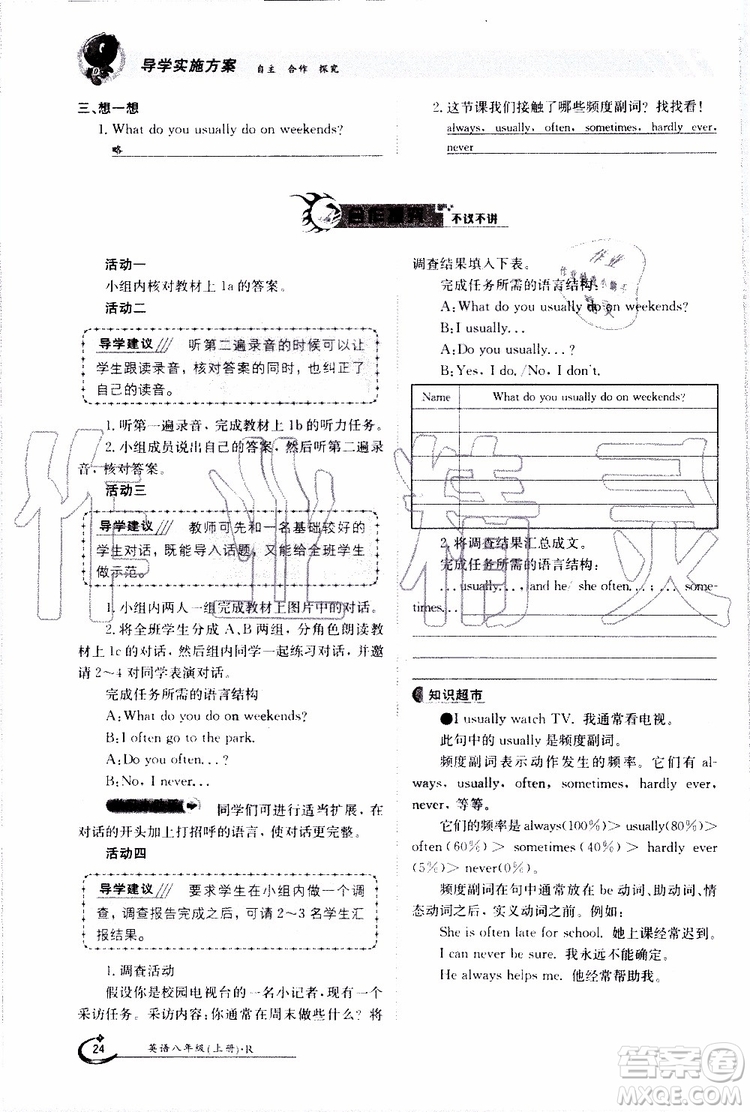 导学实施方案 自主 合作 探究
三、想一想
1. What do you usually do on weekends?
略
2. 这节课我们接触了哪些频度副词？找找看！
always, usually, often, sometimes, hardly ever,
never
不议不讲
活动一
小组内核对教材上 1a 的答案。
活动二
导学建议 听第二遍录音的时候可以让
学生跟读录音，核对答案的同时，也能纠正
自己的读音。
1. 听第一遍录音，完成教材上 1b 的听力任务。
2. 小组成员说出自己的答案，然后听第二遍录
音，核对答案。
活动三
导学建议 教师可先和一名基础较好的
学生对话，既能导入话题，又能给全班学生
做示范。
1. 小组内两人一组完成教材上图片中的对话。
2. 将全班学生分成 A、B 两组，分角色朗读教
材上 1c 的对话，然后组内同学一起练习对话，并邀
请 2～4 对同学表演对话。
完成任务所需的语言结构
A: What do you usually do on weekends?
B: I often go to the park.
A: Do you often...?
B: No, I never...
同学们可进行适当扩展，在
对话的开头加上打招呼的语言，使对话更完整。
活动四
导学建议 要求学生在小组内做一个调
查，调查报告完成之后，可请 2～3 名学生汇
报结果。
1. 调查活动
假设你是校园电视台的一名小记者，现在要
采访任务。你通常在周末做些什么？将
调查结果填入下表。
完成任务所需的语言结构：
A: What do you usually do on weekends?
B: I usually...
A: Do you...?
B: Yes, I do. /No, I don't.
Name What do you usually do on weekends?
2. 将调查结果汇总成文。
完成任务所需的语言结构：
...usually..., and he / she often...; ...some-
times...
知识超市
●I usually watch TV. 我通常看电视。
此句中的 usually 是频度副词。
频度副词表示动作发生的频率。频度副词有 al-
ways, usually, often, sometimes, hardly ever,
never 等等。
它们的频率是 always(100%)＞usually(80%)＞
often (60%) ＞ sometimes (40%) ＞ hardly ever
(5%)＞never(0%)。
频度副词在句中通常放在 be 动词、助动词、情
态动词之后，实义动词之前。例如：
She is often late for school. 她上课经常迟到。
I can never be sure. 我永远不能确定。
He always helps me. 他经常帮助我。
24 英语八年级(上册)·R
作业精灵
答案圈
MXQE.COM